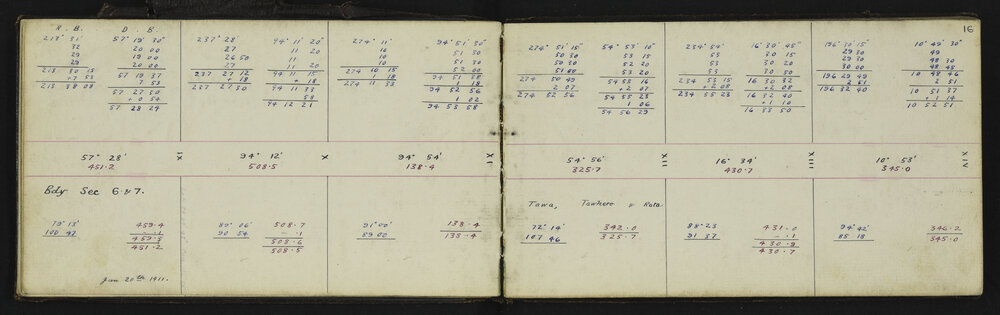 16
R. B. D. B.
213° 31' 57° 19' 30"
32 20 00
29 19 00
29 20 00
213 30 15 57 19 37
+7 53 7 53
213 38 08 57 27 30
+ 0 54
57 28 24
237° 28' 94° 11' 20"
27 11 20
26 50 11
27 11 20
237 27 12 94 11 15
+ 18 + 18
237 27 30 94 11 33
58
94 12 21
274° 11' 94° 51' 30"
10 51 30
10 51 30
10 52 00
274 10 15 94 51 38
1 18 1 18
274 11 33 94 52 56
1 02
94 53 58
57° 28' IX 94° 12' X 94° 54' XI
451.2 508.5 138.4
Bdy Sec 6 & 7.
79° 13' 459.4
100 47 .1
459.3
451.2
89° 06' 508.7
90 54 .1
508.6
508.5
91° 00' 138.4
89 00 138.4
Jan 20th 1911.
274° 51' 15" 54° 53' 10"
50 30 53 15
50 30 52 20
51 00 53 20
274 50 49 54 53 16
2 07 + 2 07
274 52 56 54 55 23
1 06
54 56 29
234° 54' 16° 30' 45"
53 30 30
53 30 20
53 30 50
234 53 15 16 30 32
+ 2 08 + 2 08
234 55 23 16 32 40
+ 1 10
16 33 50
196° 30' 15" 10° 49' 30"
29 30 49
29 30 48 30
30 00 48 45
196 29 49 10 48 46
2 51 2 51
196 32 40 10 51 37
+ 1 14
10 52 51
54° 56' XII 16° 34' XIII 10° 53' XIV
325.7 430.7 345.0
Tawa, Tawhero & Rata
72° 14' 342.0
107 46 325.7
88° 23 431.0
91 37 .1
430.9
430.7
94° 42' 346.2
85 18 345.0